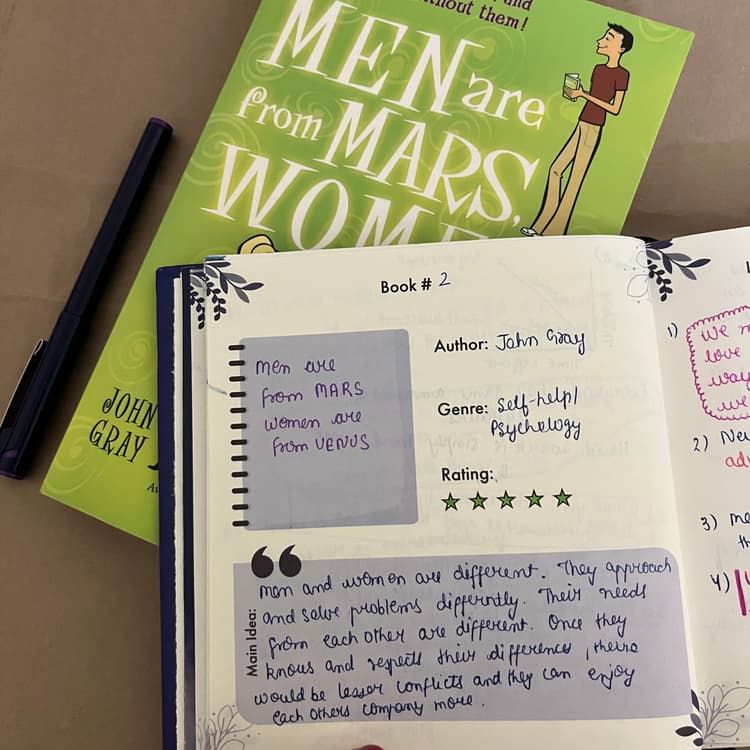 and
without them!
MEN are
from MARS,
WOME
JOHN
GRAY
Book # 2
men are
from MARS
women are
from VENUS
Author: John Gray
Genre: Self-help/
Psychology
Rating:
Main Idea:
men and women are different. They approach
and solve problems differntly. Their needs
from each other are different. Once they
knows and respects their differences, there
would be lesser conflicts and they can enjoy
each others company more.
1) We
love
way
we
2) Nev
adv
3) me
th
4)